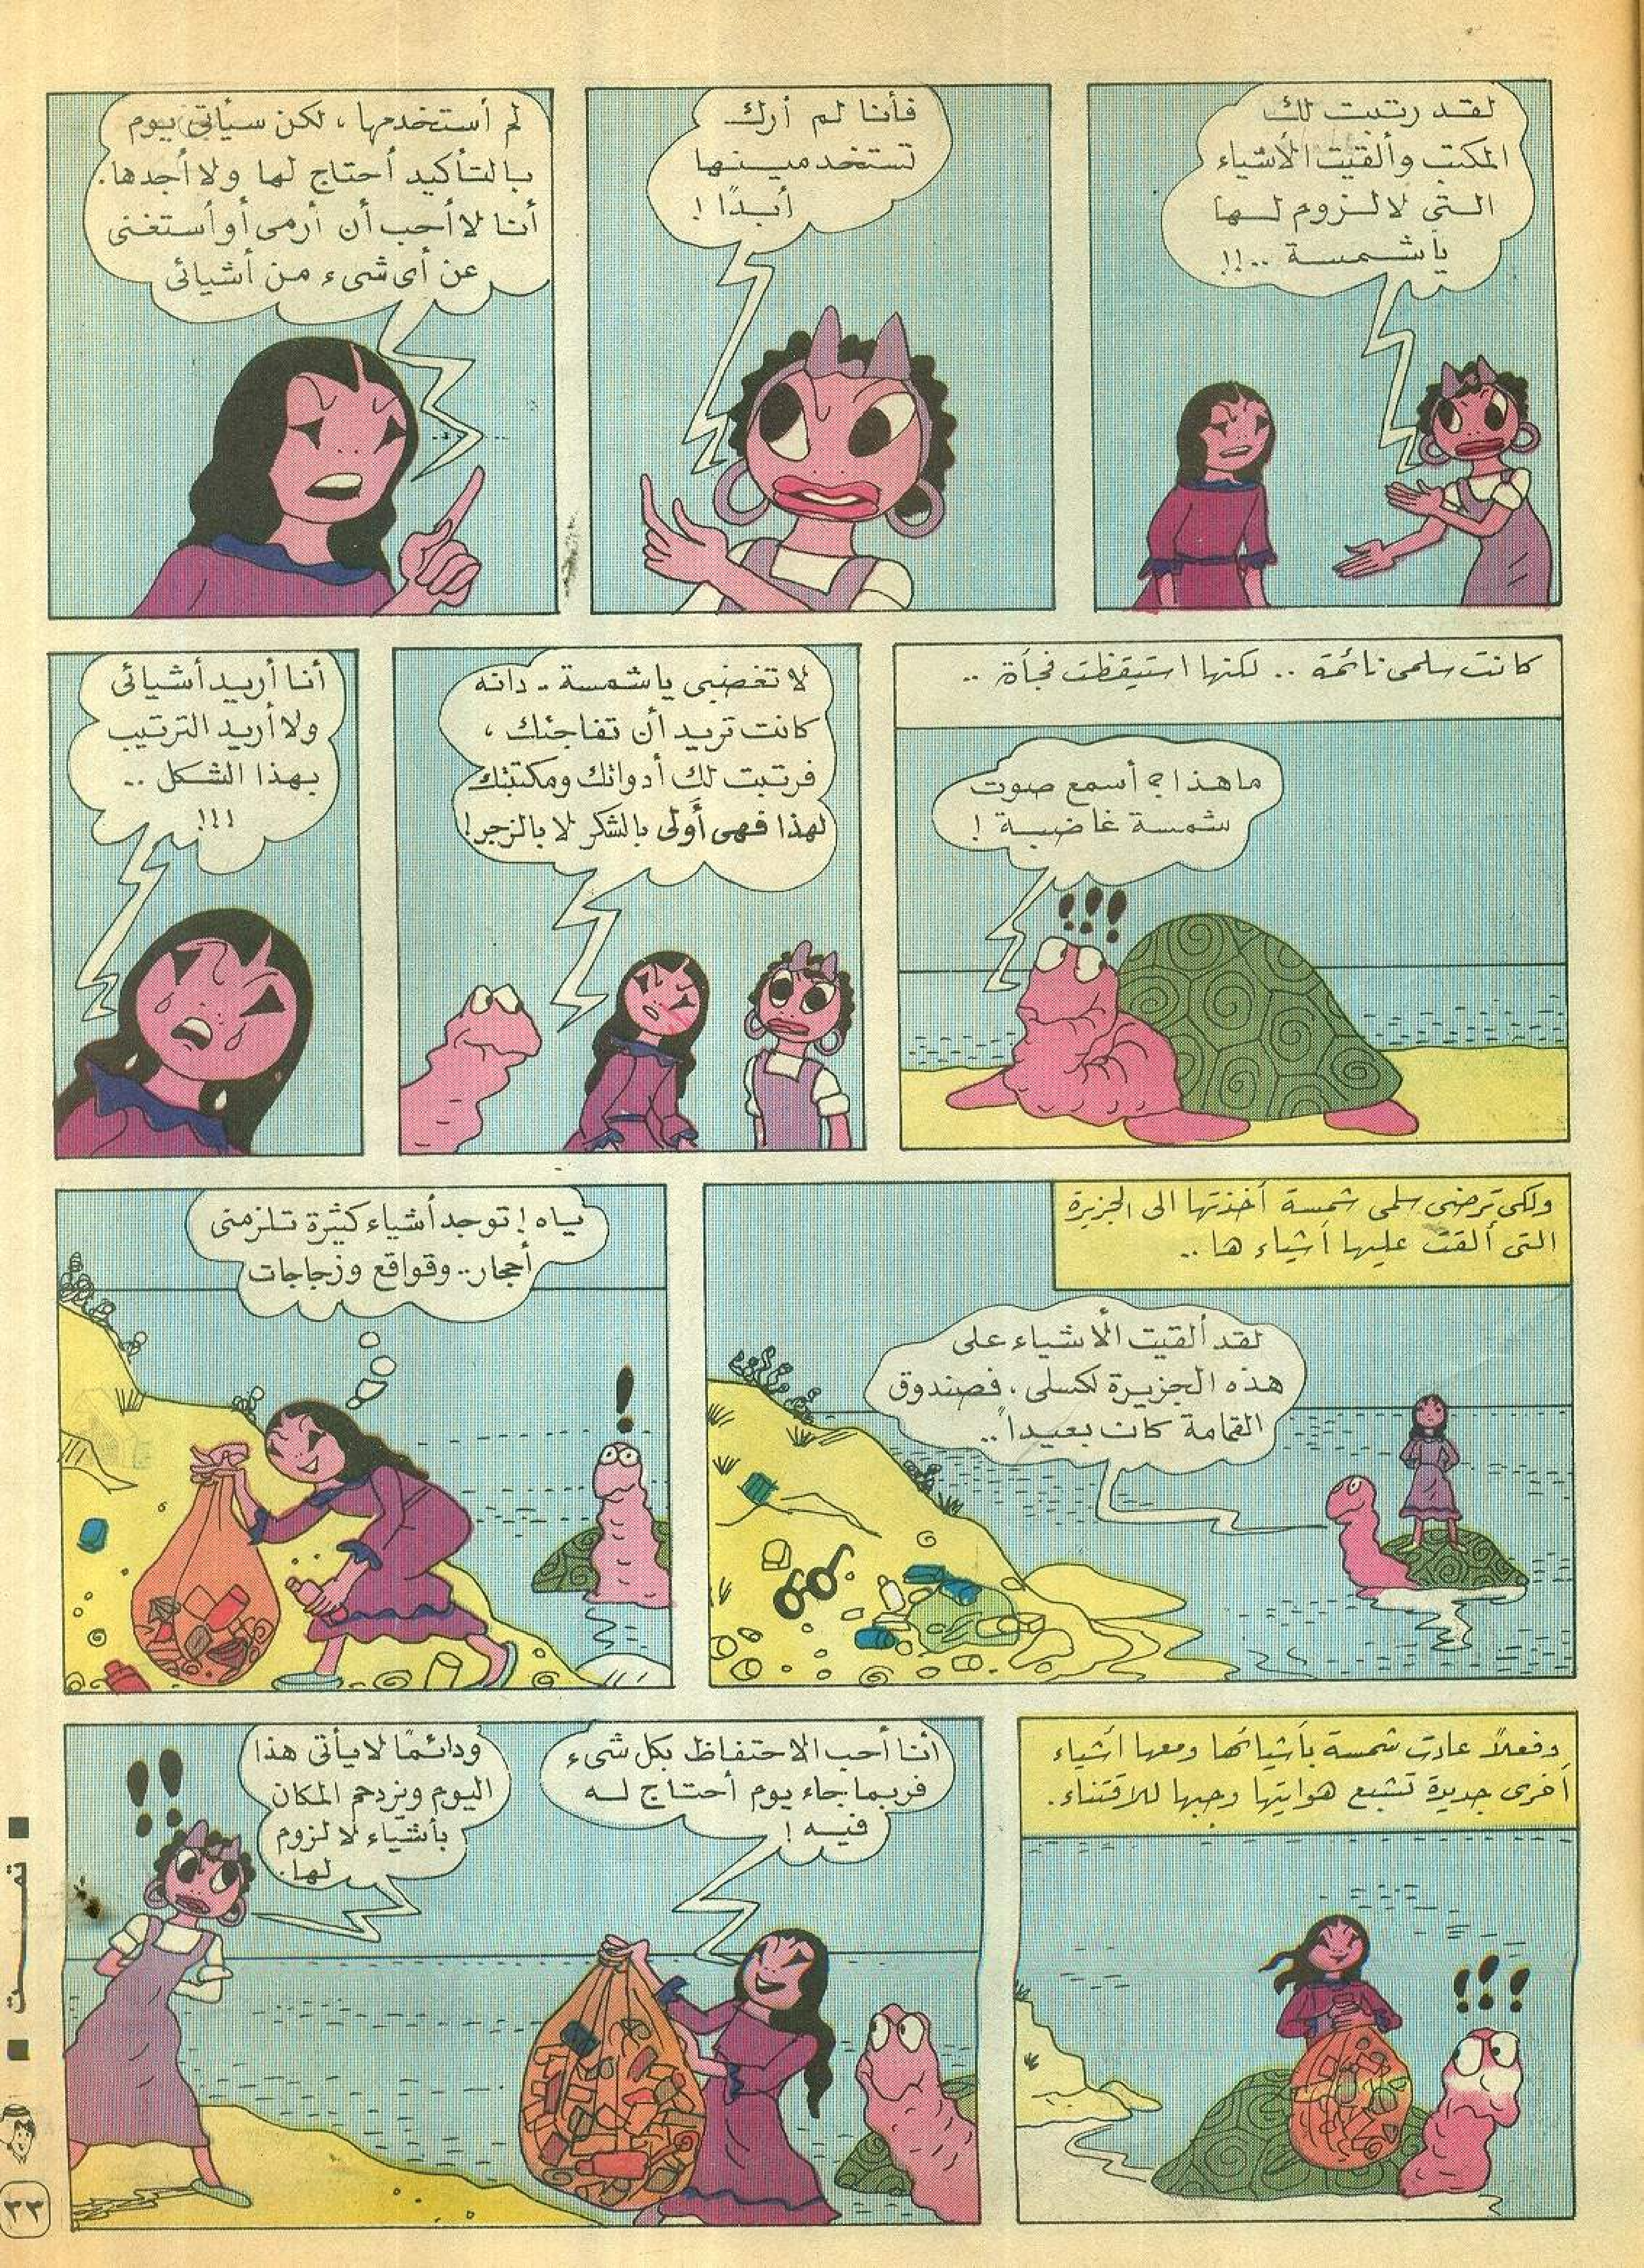 لقد رتبت لك
المكتب وألقيت الأشياء
التى لا لزوم لها
يا شمسة ..!!
فأنا لم أرك
تستخدمينها
أبدًا !
لم أستخدمها ، لكن سيأتى يوم
بالتأكيد أحتاج لها ولا أجدها.
أنا لا أحب أن أرمى أو أستغنى
عن أى شىء من أشيائى
كانت سلمى نائمة .. لكنها استيقظت فجأة ..
ما هذا ؟ أسمع صوت
شمسة غاضبة !
لا تغضبى يا شمسة .. دانه
كانت تريد أن تفاجئك ،
فرتبت لك أدواتك ومكتبتك
لهذا فهى أَولى بالشكر لا بالزجر!
أنا أريد أشيائى
ولا أريد الترتيب
بهذا الشكل ..
!!!
ولكى ترضى سلمى شمسة أخذتها الى الجزيرة
التى ألقت عليها أشياء ها ..
لقد ألقيت الأشياء على
هذه الجزيرة لكسلى ، فصندوق
القمامة كان بعيداً ..
ياه ! توجد أشياء كثيرة تلزمنى
أحجار .. وقواقع وزجاجات
وفعلاً عادت شمسة بأشيائها ومعها أشياء
أخرى جديدة تشبع هوايتها وحبها للاقتناء .
أنا أحب الاحتفاظ بكل شىء
فربما جاء يوم أحتاج له
فيه !
ودائمًا لا يأتى هذا
اليوم ويزدحم المكان
بأشياء لا لزوم
لها.
٣٣